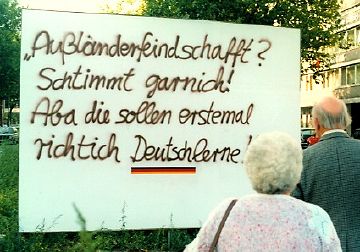 „Außländerfeindschafft?
Schtimmt garnich!
Aba die sollen erstemal
richtich Deutschlerne!"